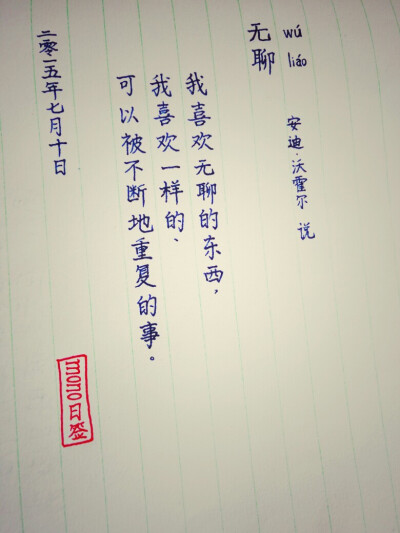 无聊
wú liáo
安迪·沃霍尔 说
我喜欢无聊的东西，
我喜欢一样的、
可以被不断地重复的事。
二零一五年七月十日
mono日签